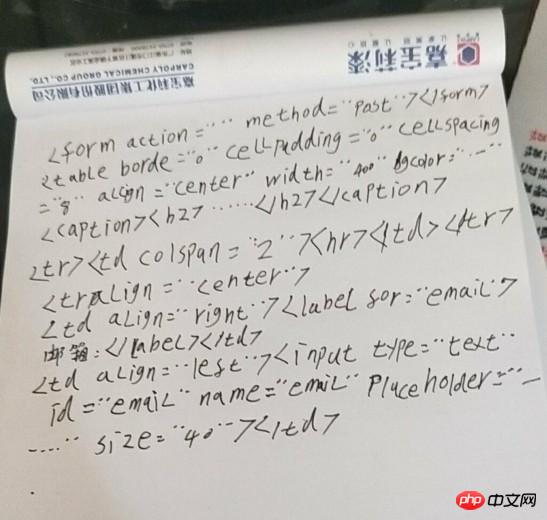 嘉宝莉漆
嘉宝莉化工集团股份有限公司
CARPOLY CHEMICAL GROUP CO., LTD.
<form action="" method="past"></form>
<table borde="0" cellpadding="0" cellspacing
="8" align="center" width="400" bgcolor="...">
<caption><h2>......</h2></caption>
<tr><td colspan="2"><hr></td></tr>
<tralign="center">
<td align="right"><label sor="email">
邮箱:</label></td>
<td align="lest"><input type="text"
id="email" name="email" Placeholder="
......" size="40"></td>
php 中文网